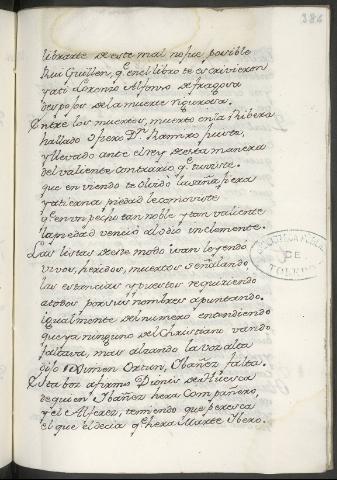 386
librarte de este mal no fue posible
Rui Guillen, q̃ en el libro te escrivieron
y a ti Lorenzo Alfonso de fragosa
despojos de la muerte rigurosa.
Entre los muertos, muerto en la Ribera
hallado Opero Dⁿ Ramiro fuiste,
y llevado ante el rey de esta manera
del valiente contrario q̃ tuviste.
que en viendote olvido la saña fiera
y a tierna piedad le comoviste
q̃ en un pecho tan noble y tan valiente
la piedad vencio al odio inclemente.
Las listas de este modo ivan leyendo
vivos, heridos, muertos señalando,
las estancias y puestos requiriendo
a todos por sus nombres apuntando.
igualmente del numero entendiendo
que ya ninguno del Christiano vando
faltava, mas alzando la voz alta
dijo Ximen Orton, Ibañez falta.
Esta boz afirmo Dionis de Huesca
de quien Ibañez hera Compañero,
y el Alferez, temiendo que peresca
el que el decia q̃ hera Marte Ibero.
BIBLIOTECA PUBLICA
DE
TOLEDO